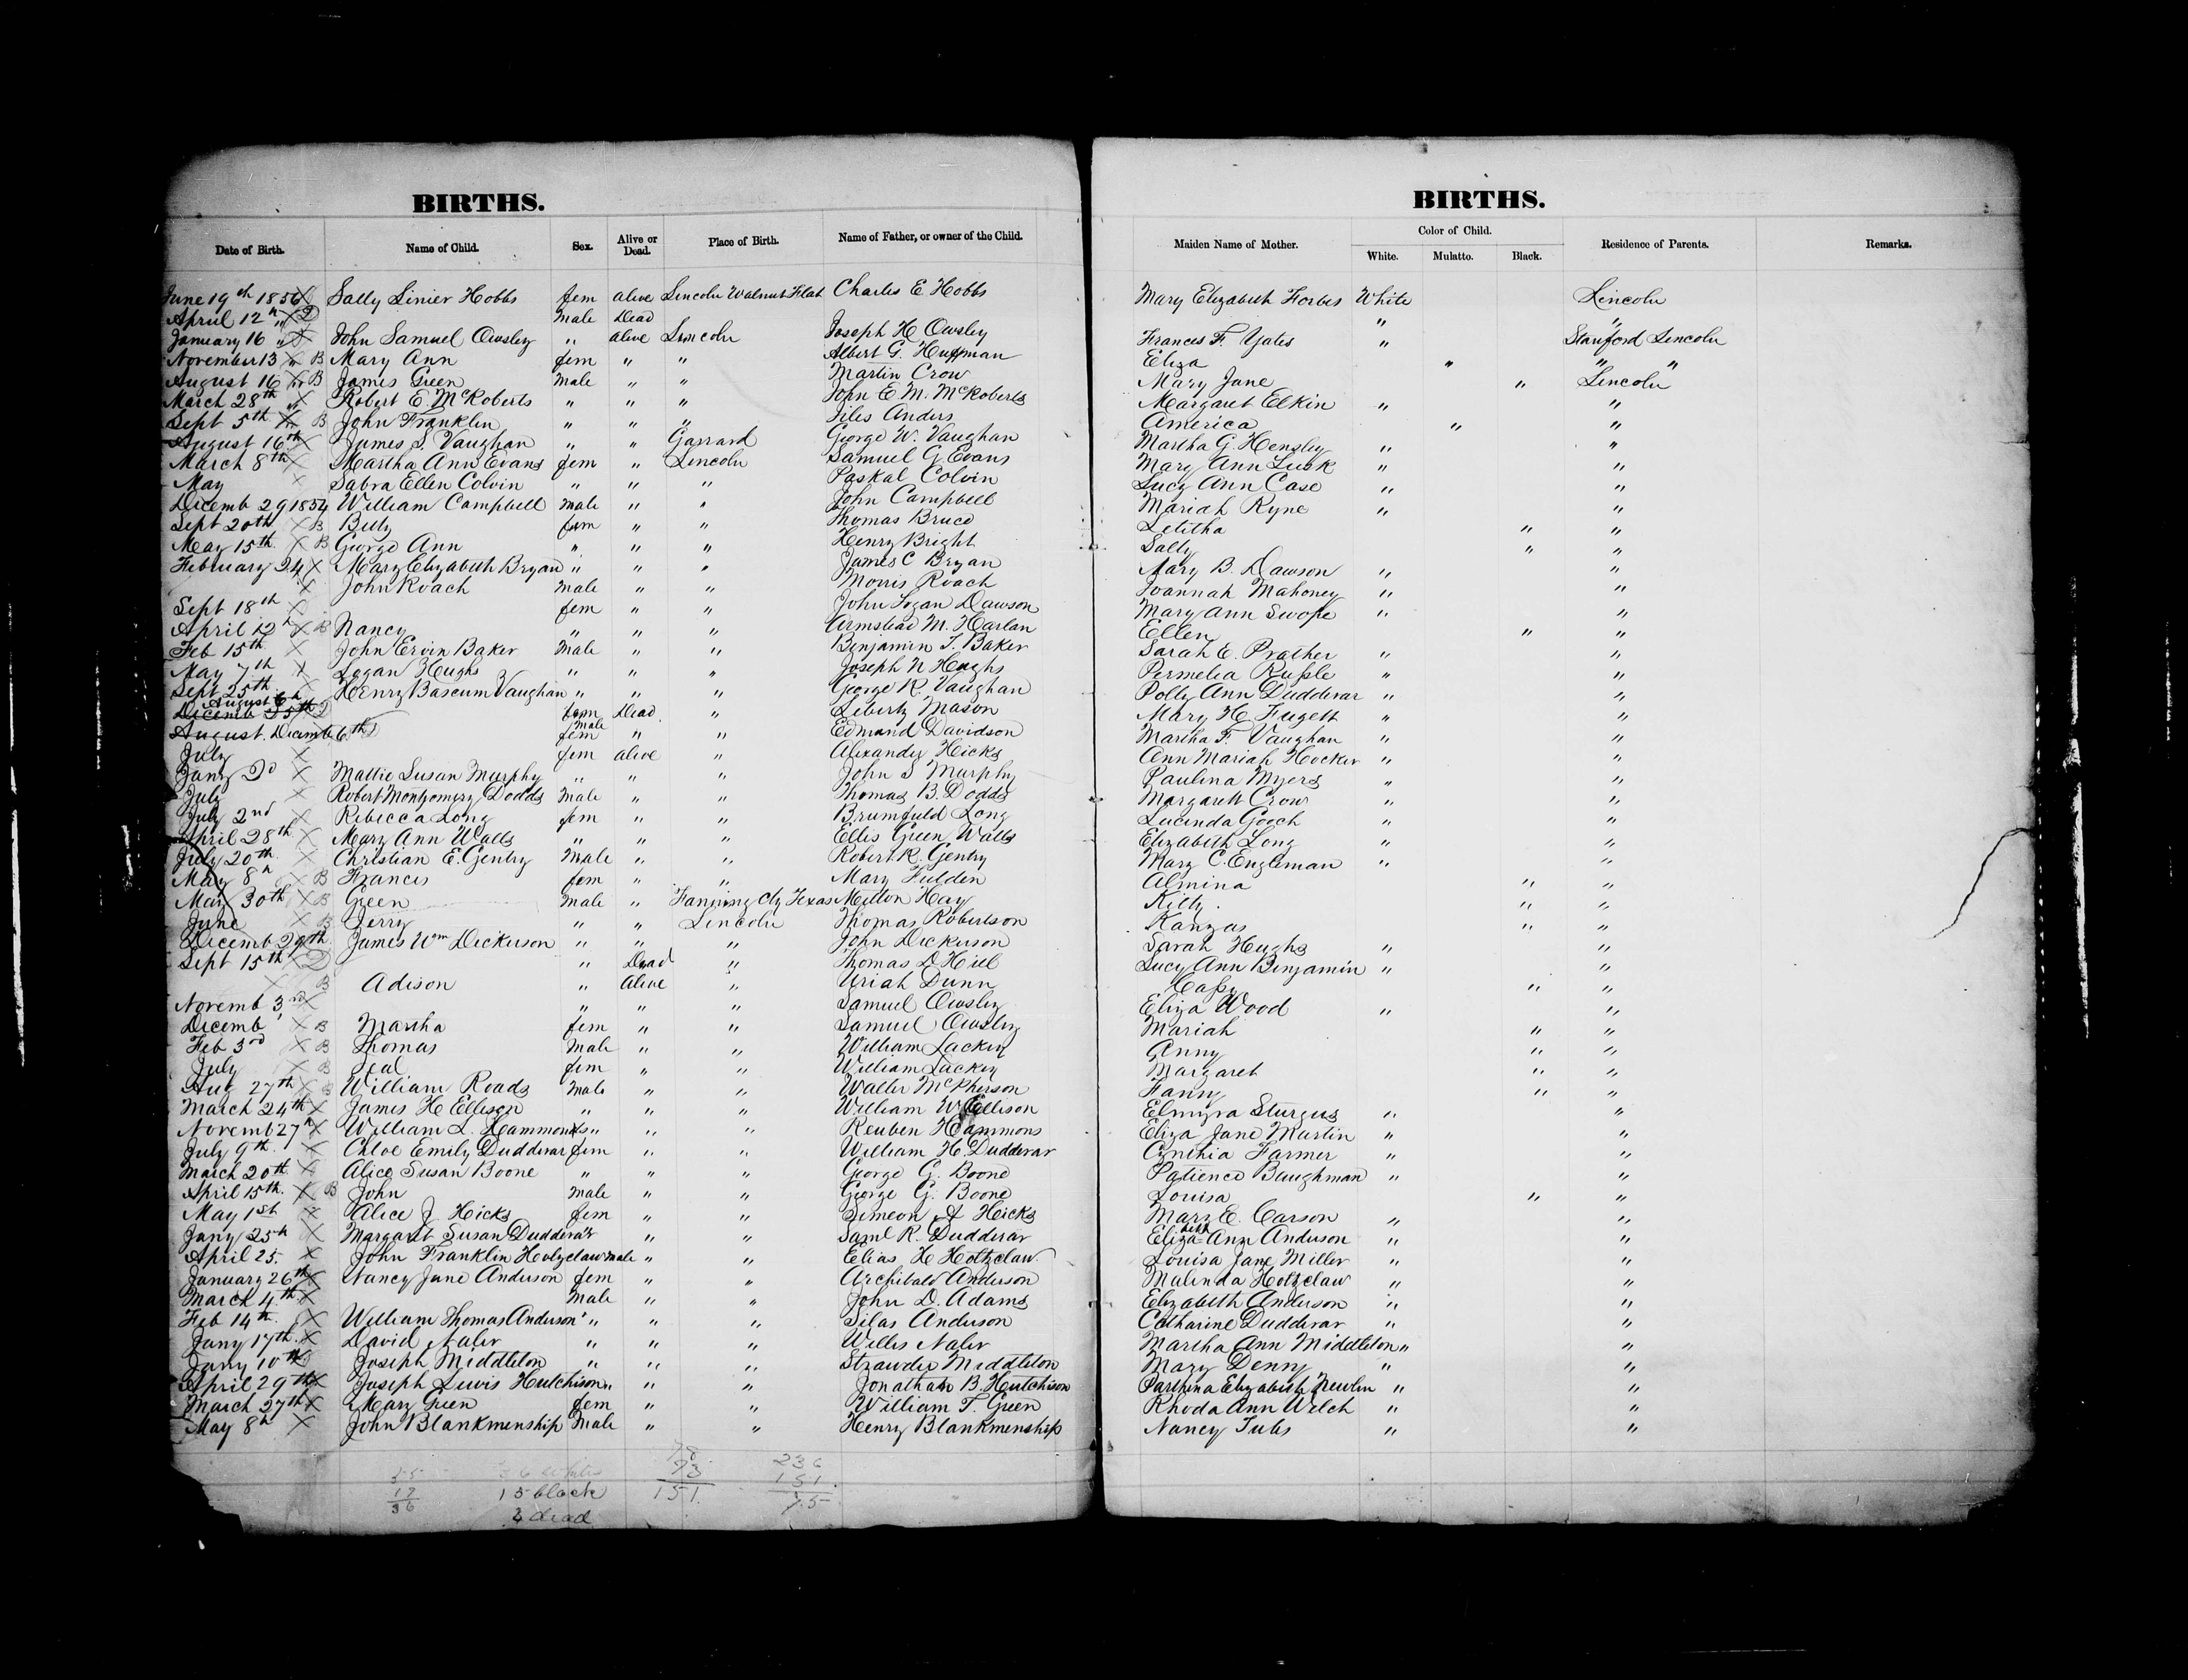 BIRTHS. BIRTHS.
Date of Birth. Name of Child. Sex. Alive or Dead. Place of Birth. Name of Father, or owner of the Child. Maiden Name of Mother. Color of Child. White. Mulatto. Black. Residence of Parents. Remarks.
June 19th 1856 X Sally Linier Hobbs fem alive Lincoln Walnut Flat Charles E Hobbs Mary Elizabeth Forbes White Lincoln
April 12th " X D male Dead " "
January 16 " X John Samuel Owsley " alive Lincoln Joseph H Owsley Frances F. Yates " Stanford Lincoln
November 13 X B Mary Ann fem " " Albert G. Huffman Eliza " " "
August 16 X B James Green male " " Martin Crow Mary Jane " Lincoln
March 28th " X Robert E. McRoberts " " " John E M. McRoberts Margaret Elkin " "
Sept 5th X B John Franklin " " " Jiles Anders America " "
August 16th X James S. Vaughan " " Garrard George W. Vaughan Martha G. Hensley " "
March 8th X Martha Ann Evans fem " Lincoln Samuel G Evans Mary Ann Lusk " "
May X Sabra Ellen Colvin " " " Paskal Colvin Lucy Ann Case " "
Decemb 29 1854 William Campbell male " " John Campbell Mariah Ryne " "
Sept 20th X B fem " " Thomas Bruce Letitha " "
May 15th X B George Ann " " " Henry Bright Sally " "
February 24 X Mary Elizabeth Bryan " " " James C Bryan Mary B. Dawson " "
X John Roach male " " Morris Roach Joannah Mahoney " "
Sept 18th X fem " " John Logan Dawson Mary Ann Swope " "
April 12th X B Nancy " " " Armstead M. Harlan Ellen " "
Feb 15th X John Ervin Baker Male " " Benjamin T. Baker Sarah E. Prather " "
May 7th X Logan Heughs " " " Joseph N Heughs Permelia Russle " "
Sept 25th X Henry Bascum Vaughan " " " George R. Vaughan Polly Ann Dudderar " "
August 6th
Decemb 25th D fem Dead " Liberty Mason Mary H. Fugett " "
August. Decemb 6th D male fem " " Edmund Davidson Martha F. Vaughan " "
July X fem alive " Alexander Hicks Ann Mariah Hocker " "
Jany X Mattie Susan Murphy " " " John S Murphy Paulina Myers " "
July X Robert Montgomery Dodds male " " Thomas B. Dodds Margarett Crow " "
July 2nd X Rebecca Long fem " " Brumfield Long Lucinda Gooch " "
April 28th X Mary Ann Walls " " " Ellis Green Walls Elizabeth Long " "
July 20th X Christian E. Gentry Male " " Robert R. Gentry Mary C. Engleman " "
May 8th X B Frances fem " " Mary Fulden Almina " "
May 30th X B Green male " Fanning Cty Texas Milton Hay Kitty " "
June X B Jerry " " Lincoln Thomas Robertson Kanzas " "
Decemb 29th James Wm Dickerson " " " John Dickerson Sarah Heughs " "
Sept 15th X D " Dead " Thomas D Hill Lucy Ann Benjamin " "
X B Adison " Alive " Uriah Dunn Cassy " "
Novemb 3rd X " " " Samuel Owsley Eliza Wood " "
Decemb X B Martha fem " " Samuel Owsley Mariah " "
Feb 3rd X B Thomas Male " " William Lackey Anny " "
July X B fem " " William Lackey Margaret " "
Aug 27th X B William Roads Male " " Walter McPherson Fanny " "
March 24th X James H Ellison " " " William W Ellison Elmyra Sturgus " "
Novemb 27th X William L. Hammonds " " " Reuben Hammons Eliza Jane Martin " "
July 9th X Chloe Emily Dudderar fem " " William H. Dudderar Cynthia Farmer " "
March 20th X Alice Susan Boone " " " George G. Boone Patience Baughman " "
April 15th X B John male " " George G. Boone Louisa " "
May 1st X Alice J Hicks fem " " Simeon A Hicks Mary E. Carson " "
Jany 25th X Margaret Susan Dudderar " " " Saml R. Dudderar Elizabeth Ann Anderson " "
April 25. X John Franklin Holtzclaw male " " Elias H Holtzclaw Louisa Jane Miller " "
January 26th X Nancy Jane Anderson fem " " Archibald Anderson Malinda Holtzclaw " "
March 4th X male " " John D. Adams Elizabeth Anderson " "
Feb 14th X William Thomas Anderson " " " Silas Anderson Catharine Dudderar " "
Jany 17th X David Naler " " " Willis Naler Martha Ann Middleton " "
Jany 10th X Joseph Middleton " " " Strawdie Middleton Mary Denny " "
April 29th X Joseph Lewis Hutchison " " " Jonathan B. Hutchison Parthena Elizabeth Newlin " "
March 27th X Mary Green fem " " William T. Green Rhoda Ann Welch " "
May 8th X John Blankmenship Male " " Henry Blankmenship Nancy Tubs " "
78 236
55 36 white 73 151
17 15 black 151.
36
4 dead